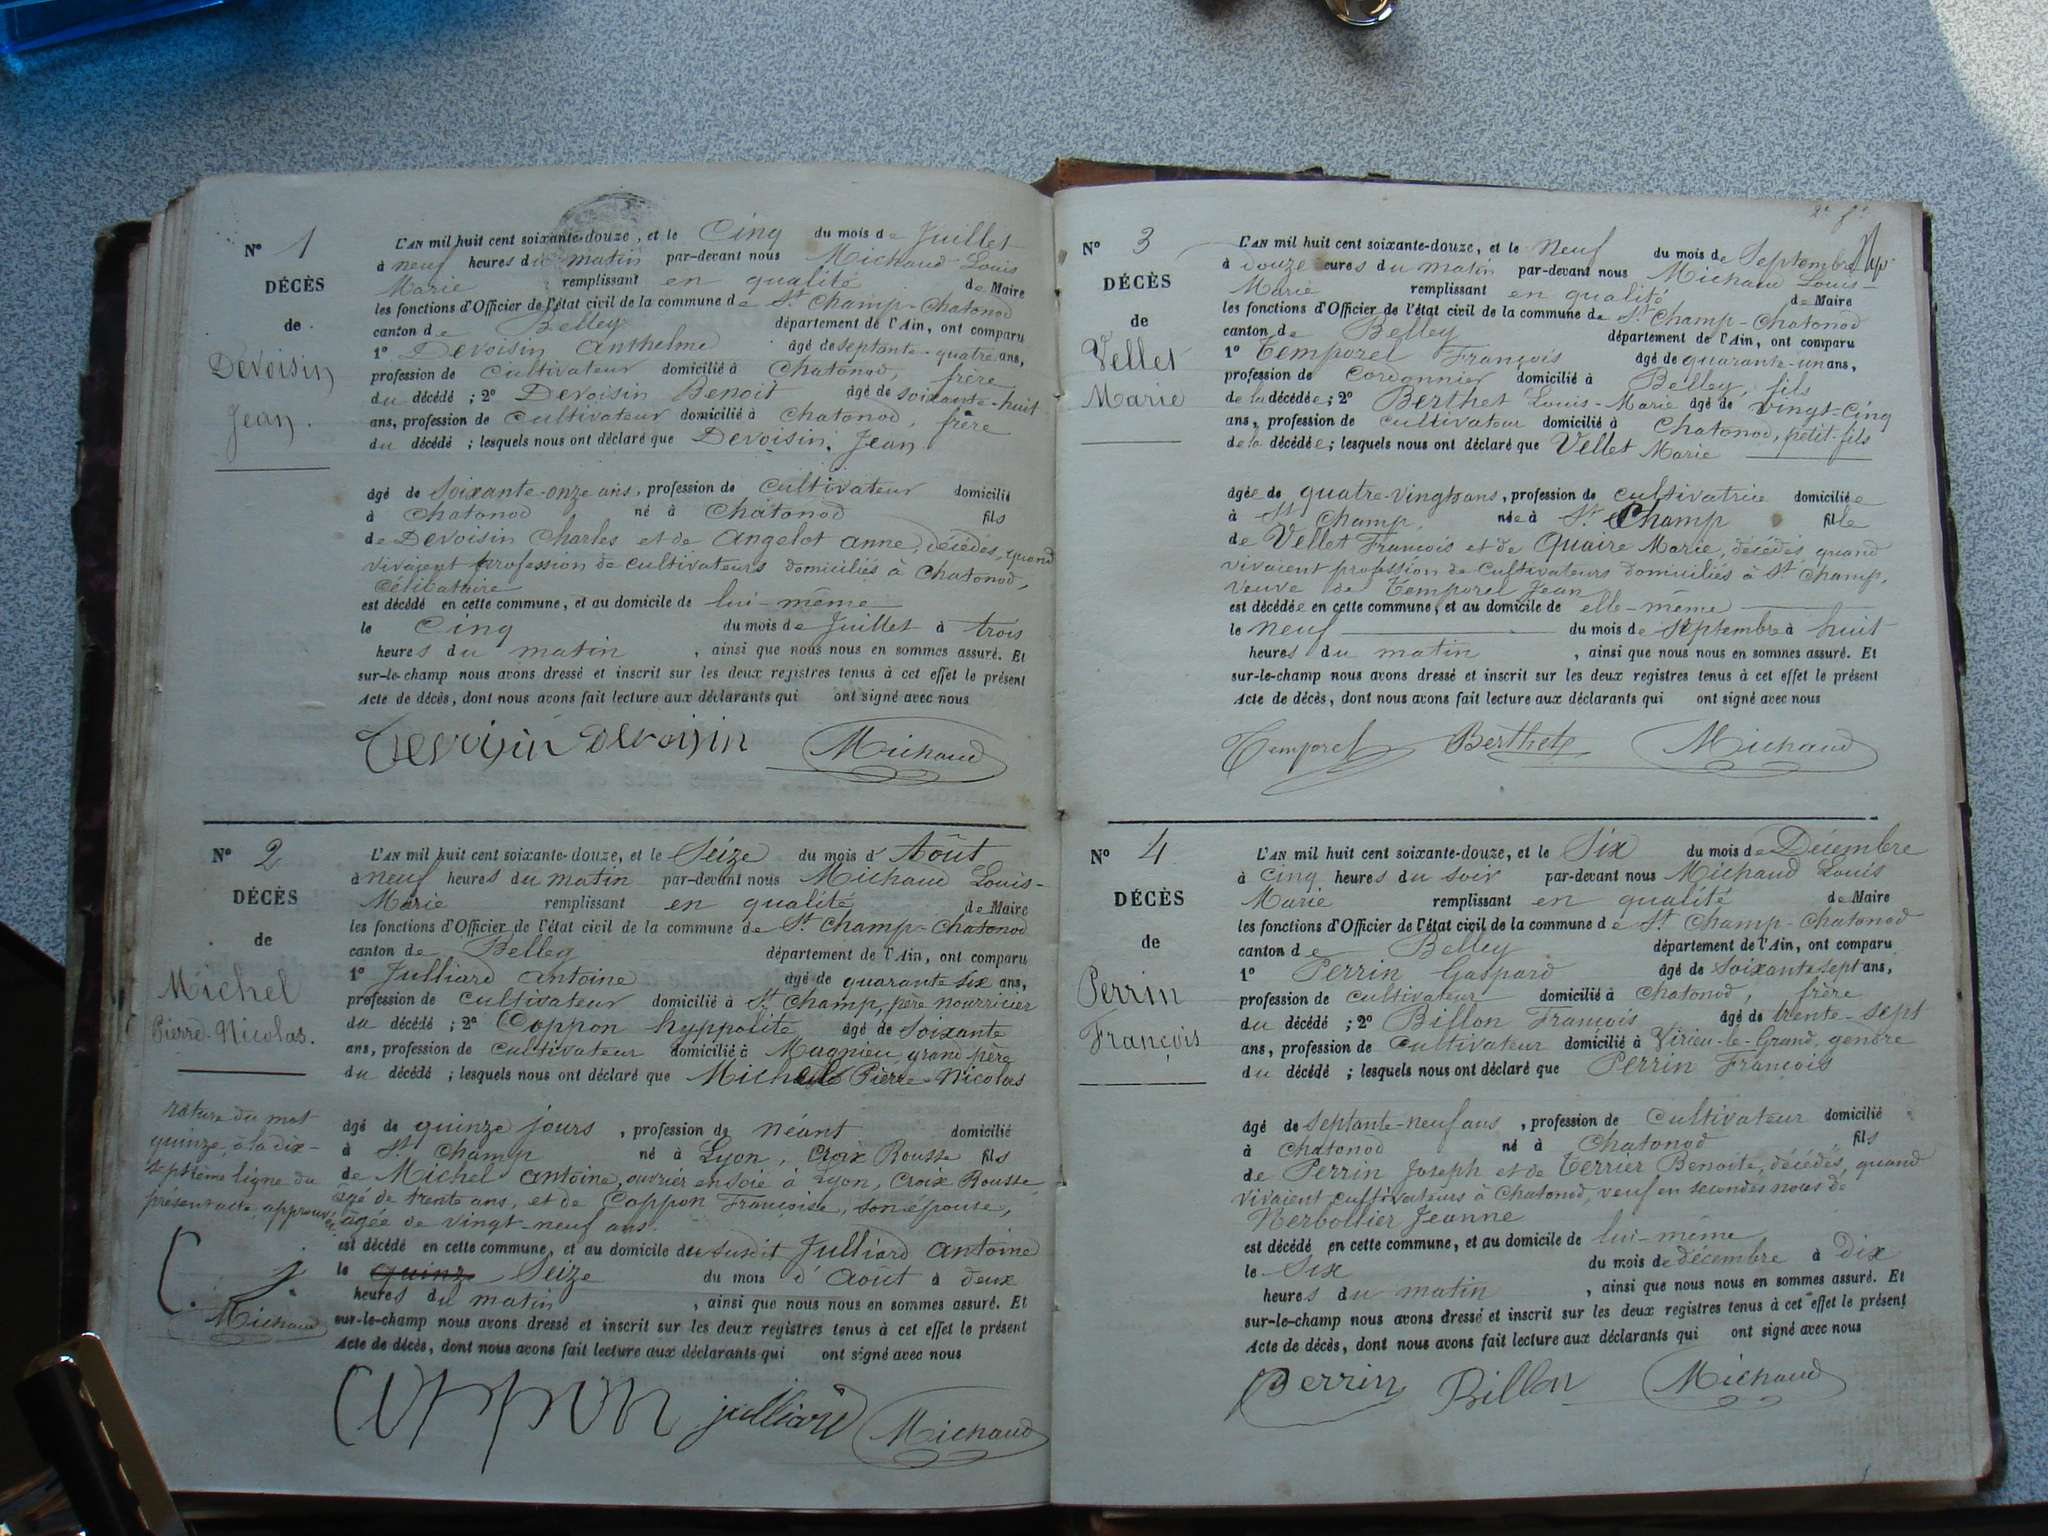 N° 1
DÉCÈS
de
Devoisin
Jean.
L'AN mil huit cent soixante-douze, et le Cinq du mois de Juillet
à neuf heures du matin par-devant nous Michaud Louis
Marie remplissant en qualité de Maire
les fonctions d'Officier de l'état civil de la commune de St Champ-Chatonod
canton de Belley département de l'Ain, ont comparu
1° Devoisin Anthelme âgé de septante-quatre ans,
profession de Cultivateur domicilié à Chatonod, frère
du décédé ; 2° Devoisin Benoit âgé de soixante-huit
ans, profession de Cultivateur domicilié à Chatonod, frère
du décédé ; lesquels nous ont déclaré que Devoisin Jean
âgé de soixante-onze ans, profession de Cultivateur domicilié
à Chatonod né à Chatonod fils
de Devoisin Charles et de Angelot Anne, décédés, quand
vivaient profession de cultivateurs domiciliés à Chatonod,
célibataire
est décédé en cette commune, et au domicile de lui-même
le Cinq du mois de Juillet à trois
heures du matin, ainsi que nous nous en sommes assuré. Et
sur-le-champ nous avons dressé et inscrit sur les deux registres tenus à cet effet le présent
Acte de décès, dont nous avons fait lecture aux déclarants qui ont signé avec nous
Devoisin Devoisin Michaud
N° 2
DÉCÈS
de
Michel
Pierre-Nicolas.
rature du mot
quinze, à la dix-
septième ligne du
présent acte, approuvé
C. j.
Michaud
L'AN mil huit cent soixante-douze, et le Seize du mois d'Août
à neuf heures du matin par-devant nous Michaud Louis-
Marie remplissant en qualité de Maire
les fonctions d'Officier de l'état civil de la commune de St Champ-Chatonod
canton de Belley département de l'Ain, ont comparu
1° Julliard Antoine âgé de quarante six ans,
profession de Cultivateur domicilié à St Champ, père nourricier
du décédé ; 2° Coppon hyppolite âgé de soixante
ans, profession de Cultivateur domicilié à Magnieu, grand père
du décédé ; lesquels nous ont déclaré que Michel Pierre-Nicolas
âgé de quinze jours, profession de néant domicilié
à St Champ né à Lyon, Croix Rousse fils
de Michel Antoine, ouvrier en soie à Lyon, Croix Rousse,
âgé de trente ans, et de Coppon Françoise, son épouse,
âgée de vingt-neuf ans.
est décédé en cette commune, et au domicile du susdit Julliard Antoine
le quinze Seize du mois d'août à deux
heures du matin, ainsi que nous nous en sommes assuré. Et
sur-le-champ nous avons dressé et inscrit sur les deux registres tenus à cet effet le présent
Acte de décès, dont nous avons fait lecture aux déclarants qui ont signé avec nous
Coppon julliard Michaud
N° 3
DÉCÈS
de
Vellet
Marie
L'AN mil huit cent soixante-douze, et le Neuf du mois de Septembre
à douze eures du matin par-devant nous Michaud Louis-
Marie remplissant en qualité de Maire
les fonctions d'Officier de l'état civil de la commune de St Champ-Chatonod
canton de Belley département de l'Ain, ont comparu
1° Temporel François âgé de quarante-un ans,
profession de Cordonnier domicilié à Belley, fils
de la décédée ; 2° Berthet Louis-Marie âgé de vingt-cinq
ans, profession de Cultivateur domicilié à Chatonod, petit-fils
de la décédée ; lesquels nous ont déclaré que Vellet Marie
âgée de quatre-vingts ans, profession de cultivatrice domiciliée
à St Champ, née à St Champ fille
de Vellet François et de Quaire Marie, décédés quand
vivaient profession de Cultivateurs domiciliés à St Champ,
veuve de Temporel Jean
est décédée en cette commune, et au domicile de elle-même
le neuf du mois de Septembre à huit
heures du matin, ainsi que nous nous en sommes assuré. Et
sur-le-champ nous avons dressé et inscrit sur les deux registres tenus à cet effet le présent
Acte de décès, dont nous avons fait lecture aux déclarants qui ont signé avec nous
Temporel Berthet Michaud
N° 4
DÉCÈS
de
Perrin
François
L'AN mil huit cent soixante-douze, et le Six du mois de Décembre
à cinq heures du soir par-devant nous Michaud Louis
Marie remplissant en qualité de Maire
les fonctions d'Officier de l'état civil de la commune de St Champ-Chatonod
canton de Belley département de l'Ain, ont comparu
1° Perrin Gaspard âgé de soixante sept ans,
profession de cultivateur domicilié à Chatonod, frère
du décédé ; 2° Billon François âgé de trente-sept
ans, profession de Cultivateur domicilié à Virieu-le-Grand, gendre
du décédé ; lesquels nous ont déclaré que Perrin François
âgé de septante-neuf ans, profession de Cultivateur domicilié
à Chatonod né à Chatonod fils
de Perrin Joseph et de Terrier Benoite, décédés, quand
vivaient cultivateurs à Chatonod, veuf en secondes noces de
Jeanne
est décédé en cette commune, et au domicile de lui-même
le Six du mois de décembre à dix
heures du matin, ainsi que nous nous en sommes assuré. Et
sur-le-champ nous avons dressé et inscrit sur les deux registres tenus à cet effet le présent
Acte de décès, dont nous avons fait lecture aux déclarants qui ont signé avec nous
Perrin Billon Michaud